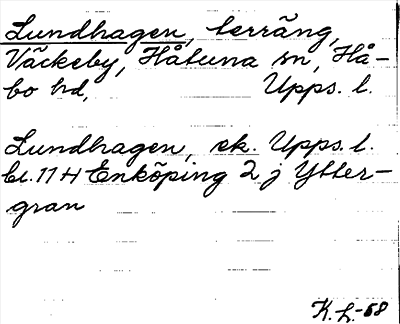 Lundhagen, terräng,
Väckeby, Håtuna sn, Hå-
bo hd, Upps. l.
Lundhagen, ek. Upps. l.
bl. 11 H Enköping 2 j Ytter-
gran
K.L.-68